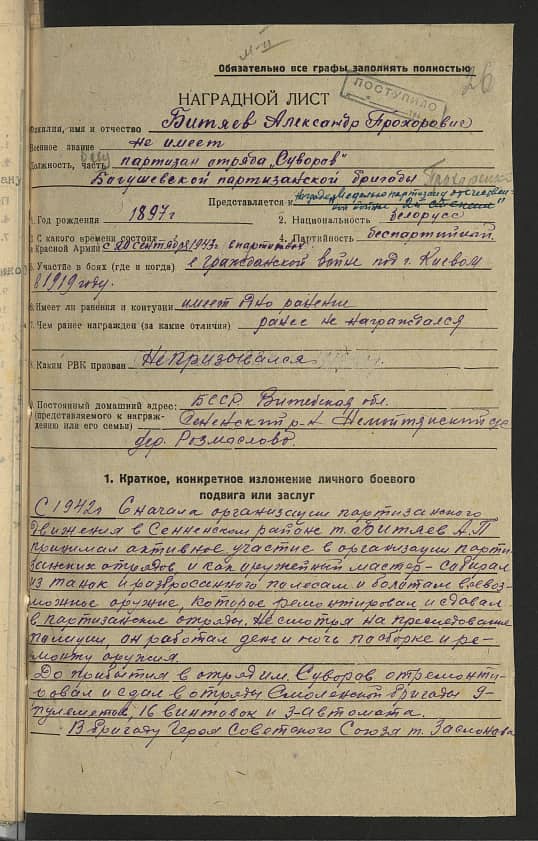 26
Обязательно все графы заполнять полностью
ПОСТУПИЛО
НАГРАДНОЙ ЛИСТ
Фамилия, имя и отчество Битяев Александр Прохорович
Военное звание не имеет
Должность, часть партизан отряда „Суворов"
Богушевской партизанской бригады
Представляется к
1. Год рождения 1897 г 2. Национальность белорусс
3. С какого времени состоит в Красной Армии с сентября 1943 г. 4. Партийность беспартийный
5. Участие в боях (где и когда) в гражданской войне под г. Киевом
в 1919 году.
6. Имеет ли ранения и контузии имеет одно ранение
7. Чем ранее награжден (за какие отличия) ранее не награждался
8. Каким РВК призван Не призывался
9. Постоянный домашний адрес: БССР Витебская обл.
(представляемого к награж-
дению или его семьи) Сенненский р-н Немойтянский с/с
дер. Розмыслово.
1. Краткое, конкретное изложение личного боевого
подвига или заслуг
С 1942 г с начала организации партизанского
движения в Сенненском районе т. Битяев А.П
принимал активное участие в организации парти-
занских отрядов и как оружейный мастер - собирал
из танок и разбросанного по лесам и болотам всевоз-
можное оружие, которое ремонтировал и сдавал
в партизанские отряды. Не смотря на преследования
полиции, он работал день и ночь по сборке и ре-
монту оружия.
До прибытия в отряд им. Суворов отремонти-
ровал и сдал в отряды Смоленской бригады 9-
пулеметов, 16 винтовок и 3-автомата.
В бригаду Героя Советского Союза т. Заслонова